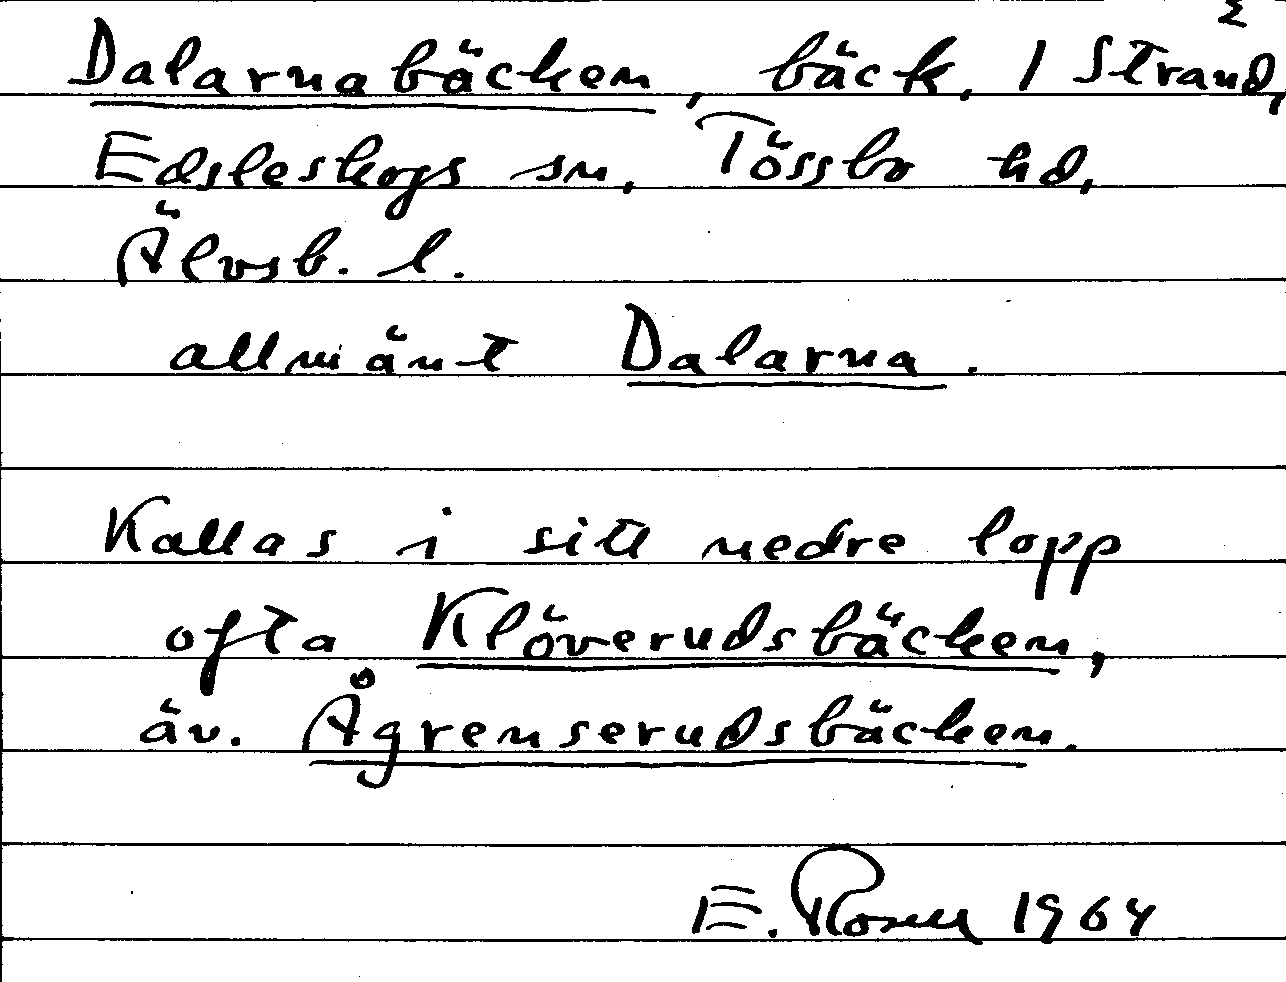 2
Dalarnabäcken, bäck, 1 Strand,
Edsleskogs sn, Tössbo hd,
Älvsb. l.
allmänt Dalarna.
Kallas i sitt nedre lopp
ofta Klöverudsbäcken,
äv. Ågrenserudsbäcken.
E. Rosell 1964